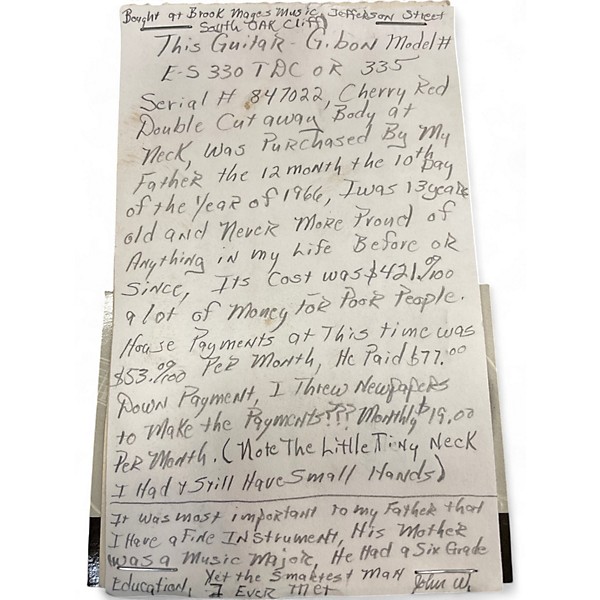 Bought at Brook Mayes Music, Jefferson Street
South OAK Cliff)
This Guitar - Gibon Model #
E-S 330 TDC OR 335
Serial # 847022, Cherry Red
Double Cut away Body at
Neck, was Purchased By My
Father the 12 month the 10th Day
of the Year of 1966, I was 13 years
old and Never More Proud of
Anything in my Life Before OR
Since, Its Cost was $421.00/100
a lot of Money FOR POOR People.
House Payments at This time was
$53.00/100 Per Month, He Paid $77.00
Down Payment, I Threw Newspapers
to Make the Payments??? Monthly $19.00
Per Month. (Note The Little Tiny Neck
I Had & Still Have Small Hands)
It was most important to my Father that
I Have a Fine Instrument, His Mother
was a Music Major, He Had a Six Grade
Education, Yet the Smartest Man
I Ever Met John W.